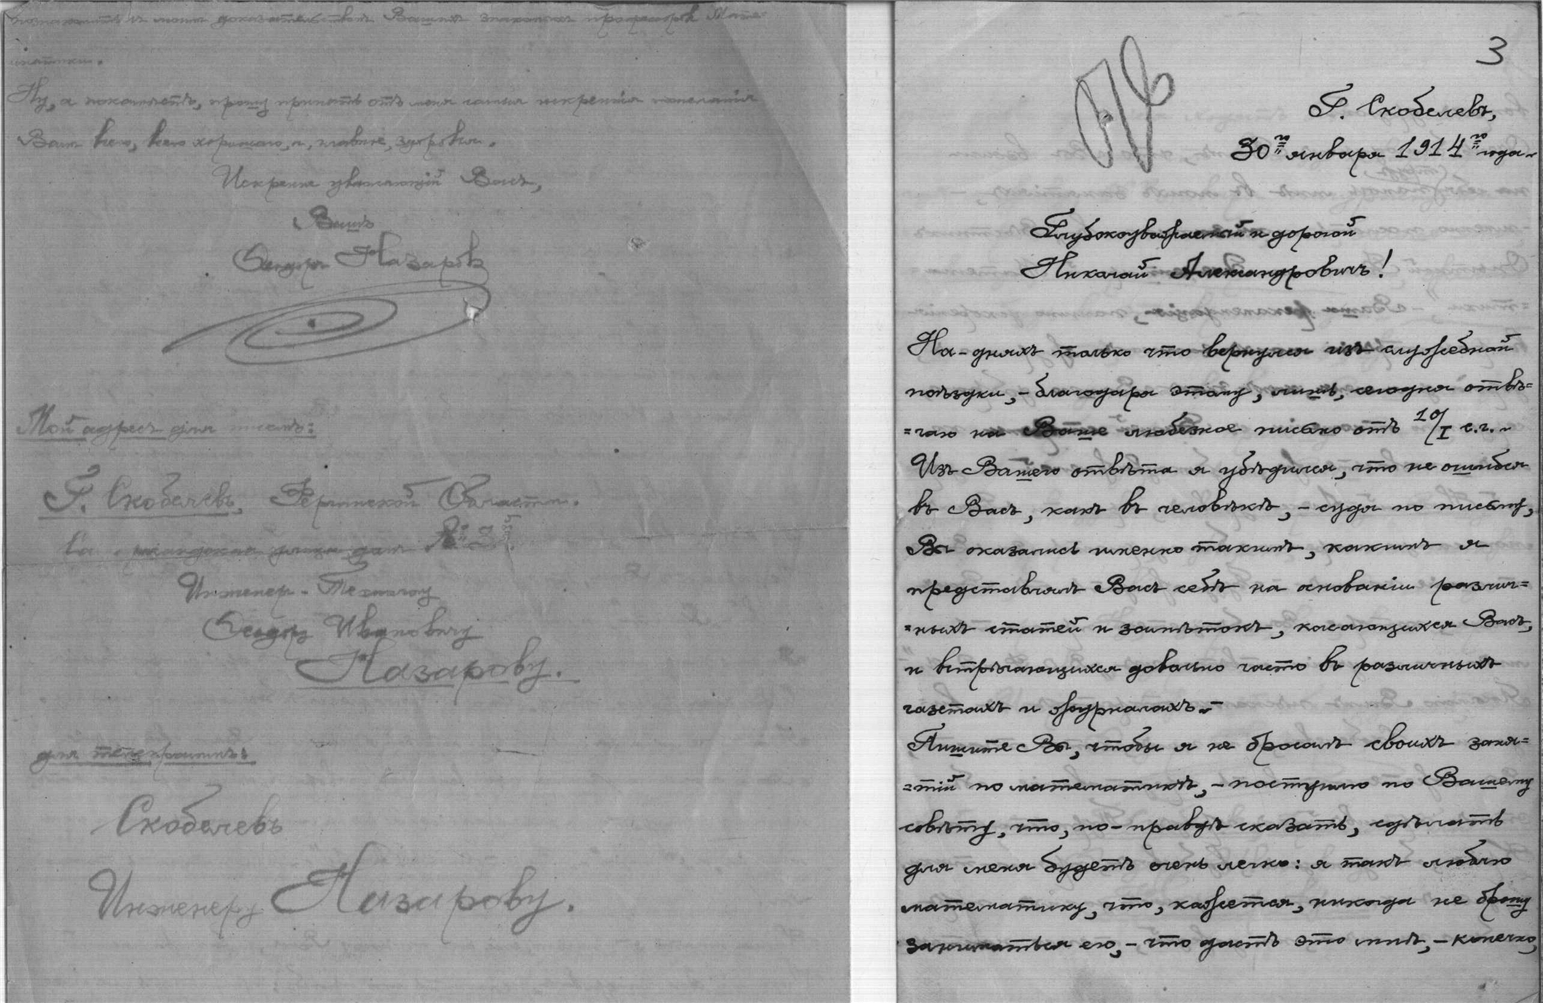 Ну, а покамѣстъ, прошу принять отъ меня самыя искреннія пожеланія
Вамъ всего, всего хорошаго, и, главное, здоровья.
Искренно уважающій Васъ,
Вашъ
Ѳеодоръ Назаровъ
Мой адресъ для писемъ:
Г. Скобелевъ, Ферганской Области.
домъ № 3й
Инженеръ-Технологу
Ѳеодору Ивановичу
Назарову.
для телеграммъ:
Скобелевъ
Инженеру Назарову.
3
Г. Скобелевъ,
30го января 1914го года.
Глубокоуважаемый и дорогой
Николай Александровичъ!
На-дняхъ только что вернулся изъ служебной
поѣздки,-благодаря этому, лишь, сегодня отвѣ=
=чаю на Ваше любезное письмо отъ 10/I с.г.-
Изъ Вашего отвѣта я убѣдился, что не ошибся
въ Васъ, какъ въ человѣкѣ,-судя по письму,
Вы оказались именно такимъ, какимъ я
представлялъ Васъ себѣ на основаніи различ=
=ныхъ статей и замѣтокъ, касающихся Васъ,
и встрѣчающихся довольно часто въ различныхъ
газетахъ и журналахъ.-
Пишите Вы, чтобы я не бросалъ своихъ заня=
=тій по математикѣ,-поступлю по Вашему
совѣту, что, по-правдѣ сказать, сдѣлать
для меня будетъ очень легко: я такъ люблю
математику, что, кажется, никогда не брошу
заниматься ею,-что дастъ это мнѣ,-конечно,